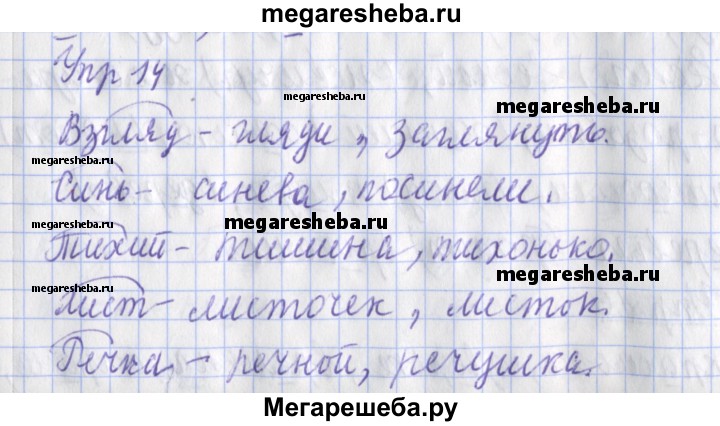 megaresheba.ru
Упр 14
megaresheba.ru
megaresheba.ru
Взгляд - гляди, заглянуть.
megaresheba.ru
Синь - синева, посинели.
megaresheba.ru
megaresheba.ru
Тихий - тишина, тихонько.
megaresheba.ru
megaresheba.ru
Лист - листочек, листок.
Речка - речной, речушка.
Мегарешеба.ру